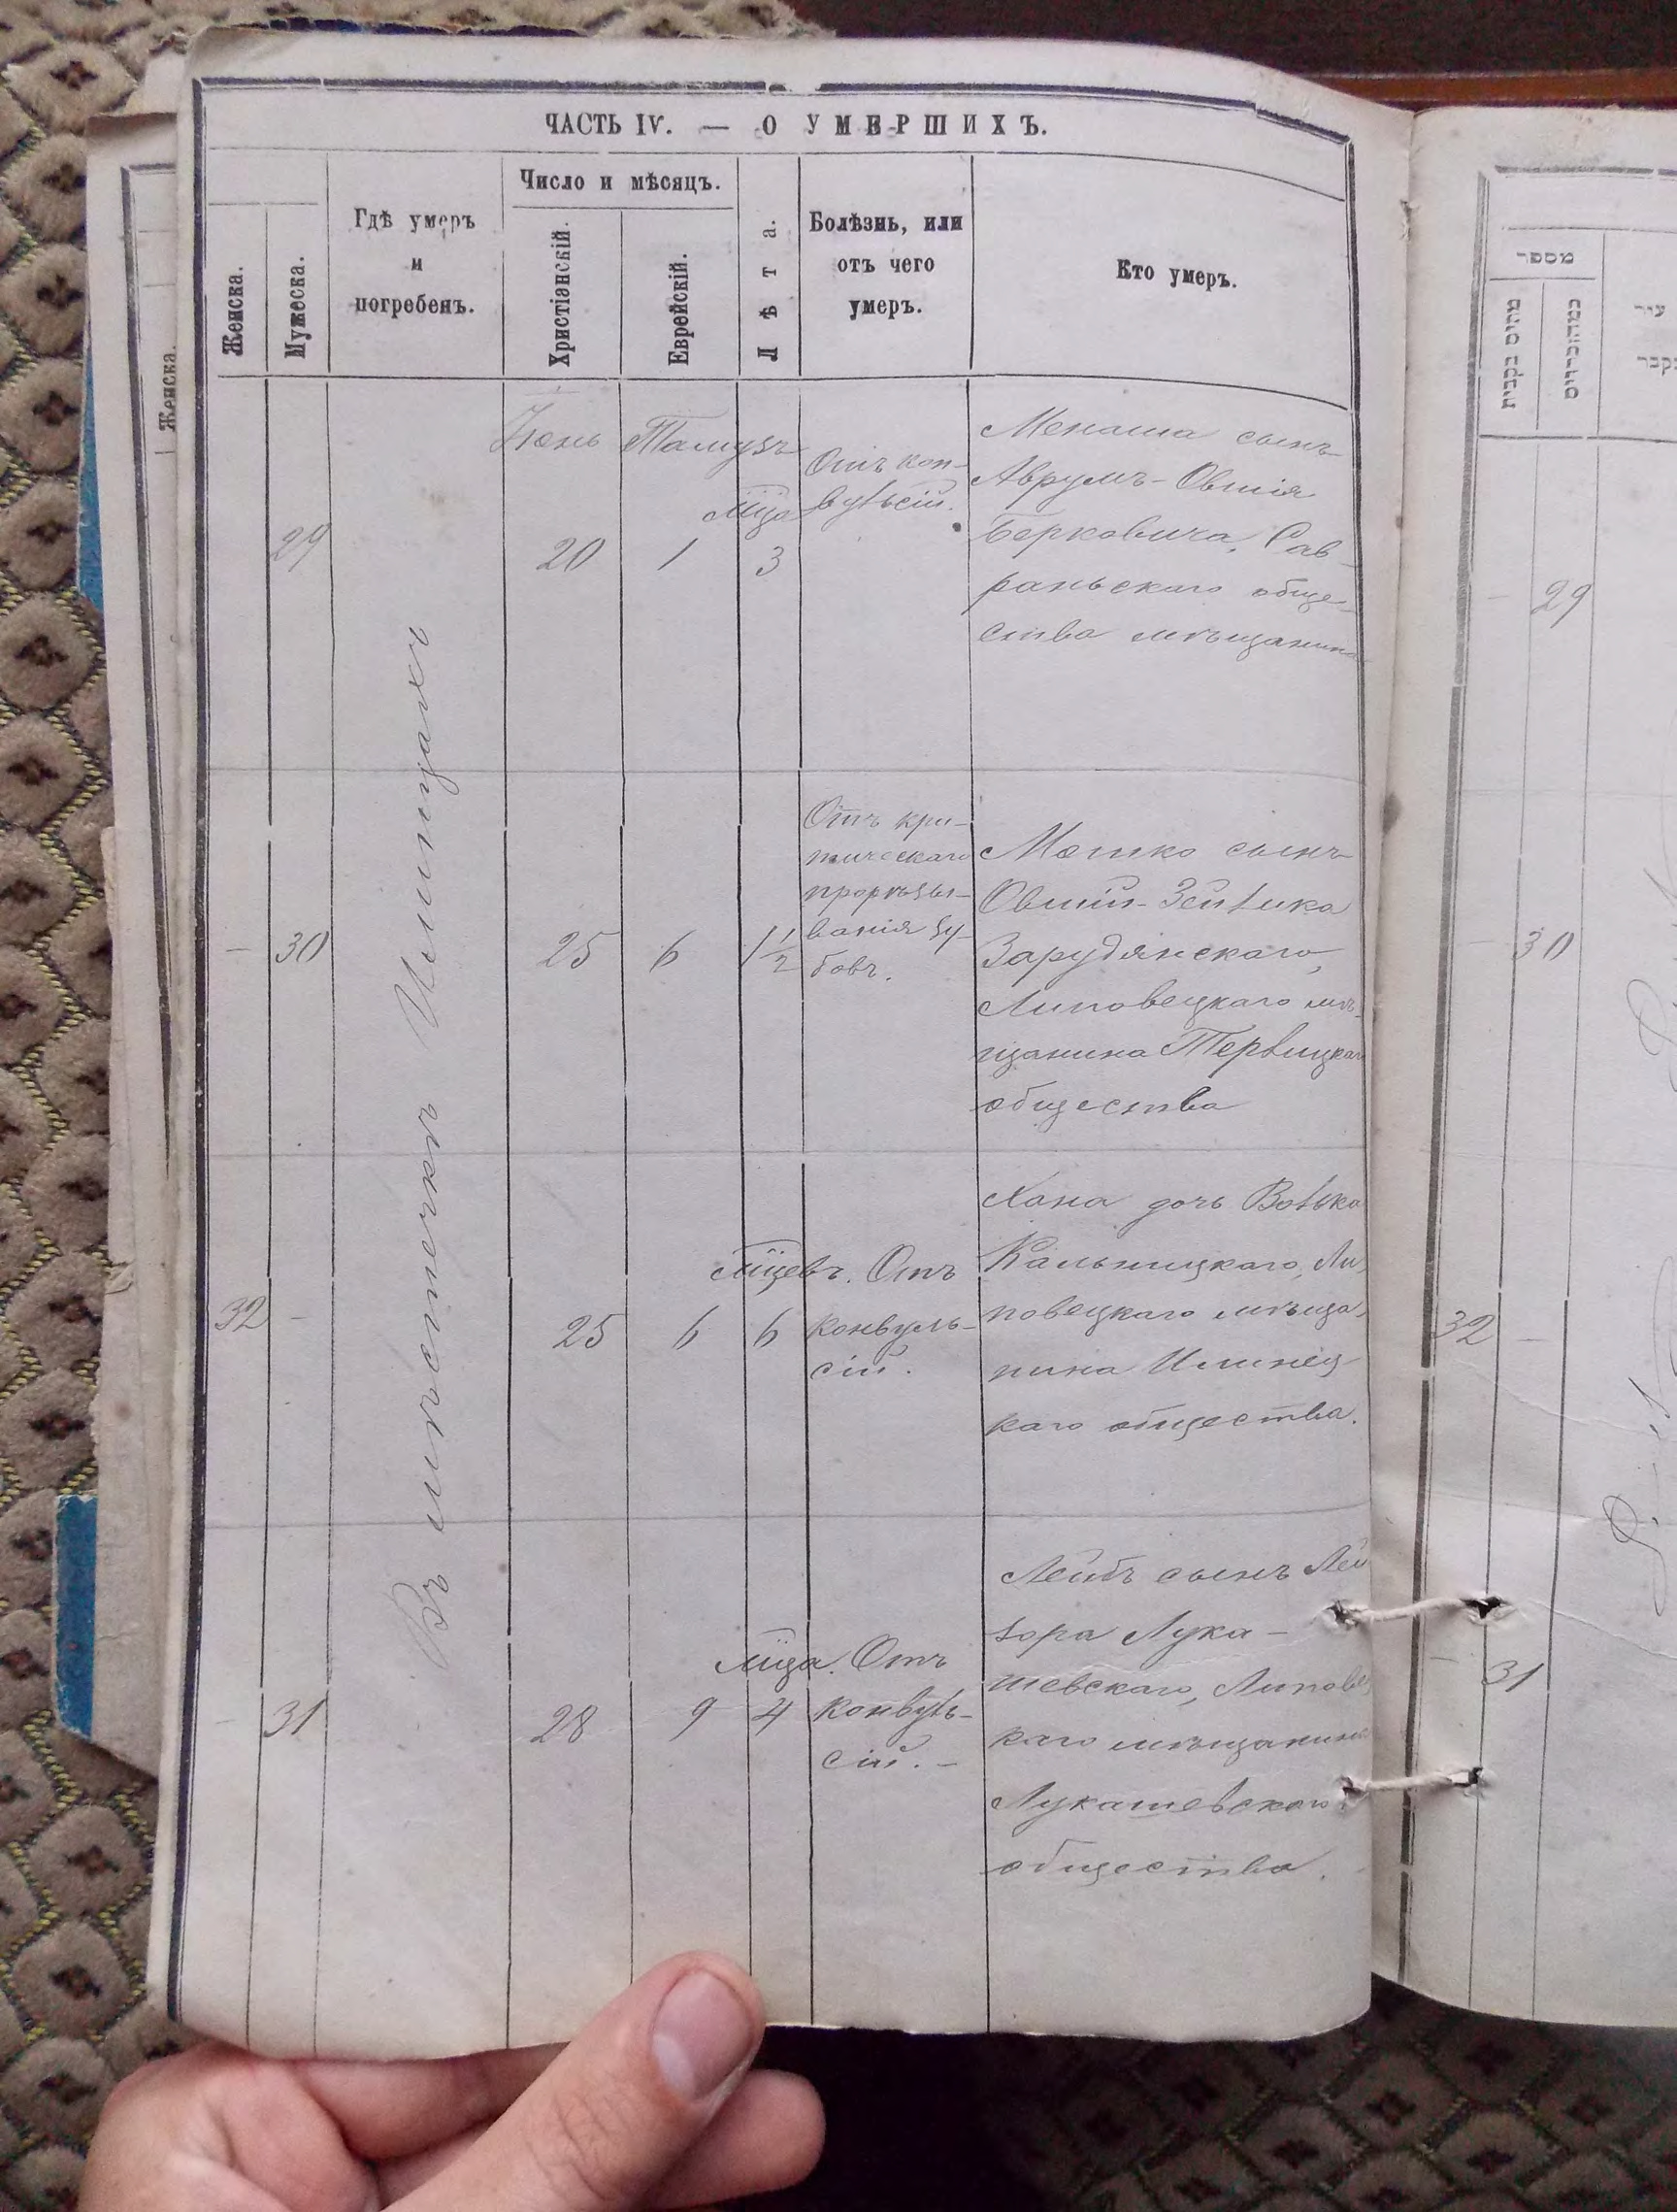 ЧАСТЬ IV. — О УМЕРШИХЪ.
Женска.
Мужеска.
Гдѣ умеръ
и
погребенъ.
Число и мѣсяцъ.
Христіанскій.
Еврейскій.
Лѣта.
Болѣзнь, или
отъ чего
умеръ.
Кто умеръ.
Въ мѣстечкѣ Илинцахъ
29
Іюнь
20
Тамузъ
1
мца
3
Отъ кон-
вульсій.
Менаша сынъ
Аврумъ-Овшія
Берковича, Сав-
раньскаго обще-
ства мѣщанина
- 30
25
6
1 1/2
Отъ кри-
тическаго
прорѣзы-
ванія зу-
бовъ.
Мошко сынъ
Овшій-Зейлика
Зарудянскаго,
Липовецкаго мѣ-
щанина
общества
32 -
25
6
мцевъ.
6
Отъ
конвуль-
сій.
Хана дочь Волька
Кальницкаго, Ли-
повецкаго мѣща-
нина Илинец-
каго общества.
- 31
28
9
мца.
4
Отъ
конвуль-
сій. -
Лейбъ сынъ Лей
зора Лука-
шевскаго, Липовец
каго мѣщанина
Лукашевскаго
общества.
Женска.
מספר
29
- 30
32 -
- 31